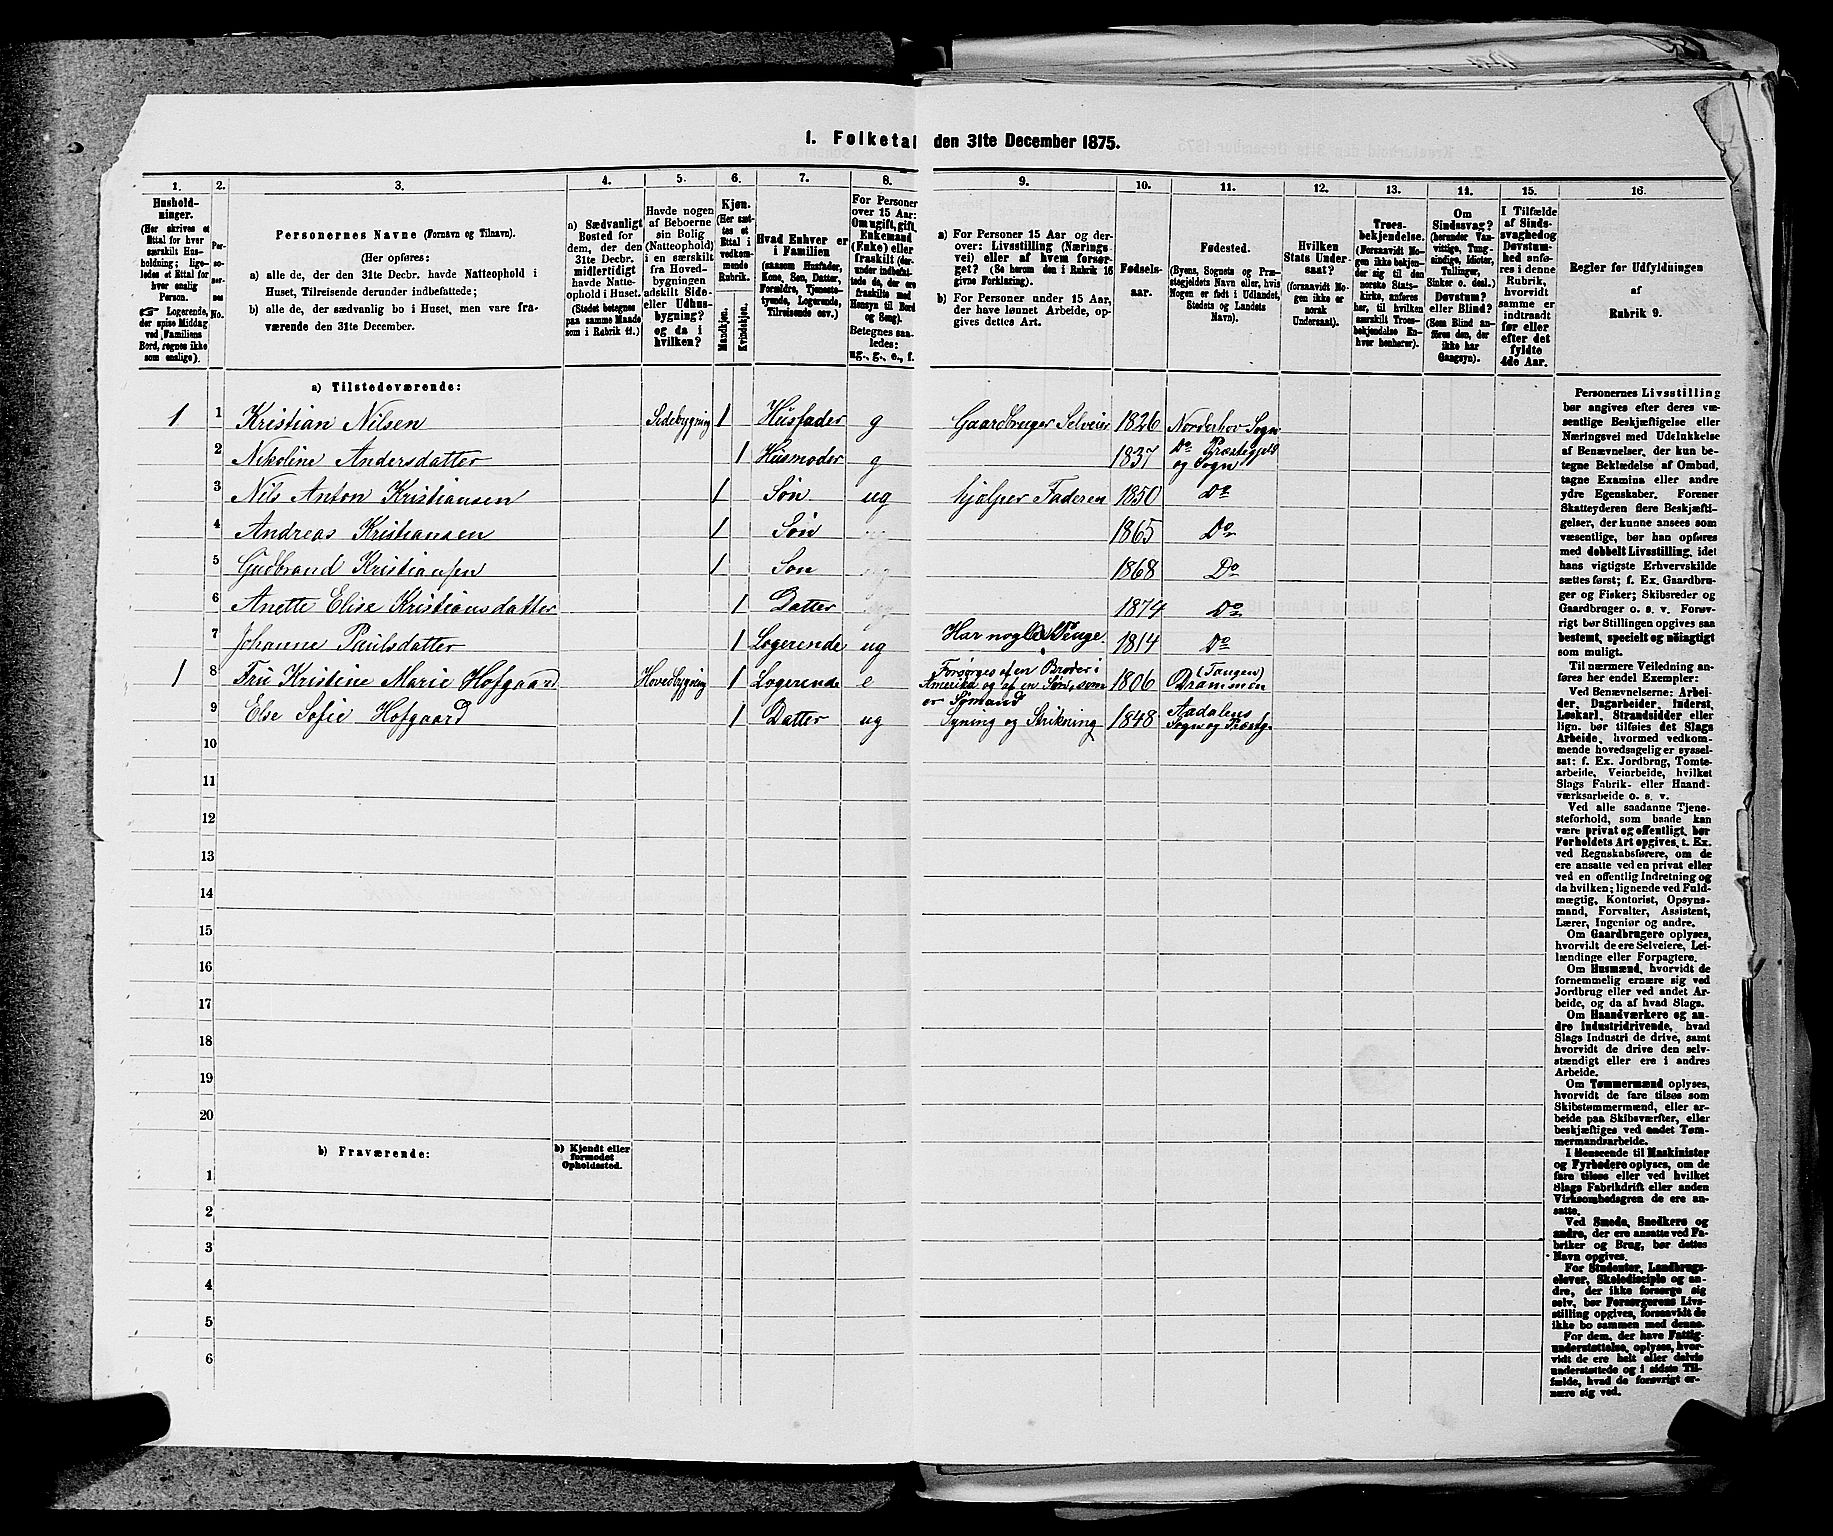 1. Folketal den 31te December 1875.
1. 2. 3. 4. 5. 6. 7. 8. 9. 10. 11. 12. 13. 14. 15. 16.
Hushold-
ninger.
(Her skrives et
Ettal for hver
særskilt Hus-
holdning; lige-
ledes et Ettal for
hver enslig
Person.
☞ Logerende,
der spise Middag
ved Familiens
Bord, regnes ikke
som enslige).
Per-
so-
ner-
nes
No.
Personernes Navne (Fornavn og Tilnavn).
(Her opføres:
a) alle de, der den 31te Decbr. havde Natteophold i
Huset, Tilreisende derunder indbefattede;
b) alle de, der sædvanlig bo i Huset, men vare fra-
værende den 31te December.
a) Sædvanligt
Bosted for
dem, der den
31te Decbr.
midlertidigt
havde Natte-
ophold i Huset.
(Stedet betegnes
paa samme Maade
som i Rubrik 11.)
Havde nogen
af Beboerne
sin Bolig
(Natteophold)
i en særskilt
fra Hoved-
bygningen
adskilt Side-
eller Udhus-
bygning?
og da i
hvilken?
Kjøn.
(Her sæt-
tes et
Ettal i
vedkom-
mende
Rubrik.
Mandkjøn.
Kvindekjøn.
Hvad Enhver er
i Familien
(saasom Husfader,
Kone, Søn, Datter,
Forældre, Tjeneste-
tyende, Logerende,
Tilreisende osv.)
For Personer
over 15 Aar:
Om ugift, gift,
Enkemand
(Enke) eller
fraskilt (der-
under indbefat-
tede de, der ere
fraskilte med
Hensyn til Bord
og Seng).
Betegnes saa-
ledes:
ug., g., e., f.
a) For Personer 15 Aar og der-
over: Livsstilling (Nærings-
vei) eller af hvem forsør-
get? (Se herom den i Rubrik 16
givne Forklaring).
b) For Personer under 15 Aar,
der have lønnet Arbeide, op-
gives dettes Art.
Fødsels-
aar.
Fødested.
(Byens, Sognets og Præ-
stegjeldets Navn, eller hvis
Nogen er født i Udlandet,
Stedets og Landets
Navn).
Hvilken
Stats Under-
saat?
(forsaavidt No-
gen ikke er
norsk
Undersaat).
Troes-
bekjendelse.
(Forsaavidt No-
gen ikke bekjen-
der sig til den
norske Stats-
kirke, anføres
her, til hvilken
særskilt Troes-
bekjendelse En-
hver henhører).
Om
Sindssvag?
(herunder Van-
vittige, Tung-
sindige, Idioter,
Tullinger,
Sinker o. desl.)
Døvstum?
eller Blind?
(Som Blind an-
føres den, der
ikke har
Gangsyn).
I Tilfælde
af Sinds-
svaghed og
Døvstum-
hed anfø-
res i denne
Rubrik,
hvorvidt
samme er
indtraadt
før eller
efter det
fyldte
4de Aar.
Regler for Udfyldningen
af
Rubrik 9.
a) Tilstedeværende:
1 1 Kristian Nilsen Sidebygning 1 Husfader g Gaardbruger Selveier 1826 Norderhov Sogn
2 Nikoline Andersdatter 1 Husmoder g 1837 Do Præstegjeld og Sogn
3 Nils Anton Kristiansen 1 Søn ug hjælper Faderen 1850 Do
4 Andreas Kristiansen 1 Søn 1865 Do
5 Gudbrand Kristiansen 1 Søn 1868 Do
6 Anette Elise Kristiansdatter 1 Datter 1874 Do
7 Johanne Paulsdatter 1 Logerende ug Har nogle Penge 1814 Do
1 8 Fru Kristine Marie Hofgaard Hovedbygning 1 Logerende e Forsørges af en Broder i Amerika og af en Søn, som er Sømand 1806 (Tangen) Drammen
9 Else Sofie Hofgaard 1 Datter ug Syning og Strikning 1848 Aadalens Sogn og Præstg.
10
11
12
13
14
15
16
17
18
19
20
b) Fraværende:
b) Kjendt eller
formodet
Opholdssted.
1
2
3
4
5
6
Personernes Livsstilling
bør angives efter deres væ-
sentlige Beskjæftigelse eller
Næringsvei med Udelukkelse
af Benævnelser, der kun be-
tegne Beklædelse af Ombud,
tagne Examina eller andre
ydre Egenskaber. Forener
Skatteyderen flere Beskjæfti-
gelser, der kunne ansees som
væsentlige, bør han opføres
med dobbelt Livsstilling, idet
hans vigtigste Erhvervskilde
sættes først; f. Ex. Gaardbru-
ger og Fisker; Skibsreder og
Gaardbruger o. s. v. Forøv-
rigt bør Stillingen opgives saa
bestemt, specielt og nøiagtigt
som muligt.
Til nærmere Veiledning an-
føres her endel Exempler:
Ved Benævnelserne: Arbei-
der, Dagarbeider, Inderst,
Løskarl, Strandsidder eller
lign. bør tilføies det Slags
Arbeide, hvormed vedkom-
mende hovedsagelig er syssel-
sat: f. Ex. Jordbrug, Tomte-
arbeide, Veiarbeide, hvilket
Slags Fabrik- eller Haand-
værksarbeide o. s. v.
Ved alle saadanne Tjene-
steforhold, som baade kan
være privat og offentligt, bør
Forholdets Art opgives, t. Ex.
ved Regnskabsførere, om de
ere ansatte ved en privat eller
ved en offentlig Indretning og
da hvilken; lignende ved Fuld-
mægtig, Kontorist, Opsyns-
mand, Forvalter, Assistent,
Lærer, Ingeniør og andre.
Om Gaardbrugere oplyses,
hvorvidt de ere Selveiere, Lei-
lændinge eller Forpagtere.
Om Husmænd, hvorvidt de
fornemmelig ernære sig ved
Jordbrug eller ved andet Ar-
beide, og da af hvad Slags.
Om Haandværkere og an-
dre Industridrivende, hvad
Slags Industri de drive, samt
hvorvidt de drive den selv-
stændigt eller ere i andres
Arbeide.
Om Tømmermænd oplyses,
hvorvidt de fare tilsøs som
Skibstømmermænd, eller ar-
beide paa Skibsværfter, eller
beskjæftiges ved andet Tøm-
mermandsarbeide.
I Henseende til Maskinister
og Fyrbødere oplyses, om de
fare tilsøs eller ved hvilket
Slags Fabrikdrift eller anden
Virksomhedsgren de ere an-
satte.
Ved Smede, Snedkere og
andre, der ere ansatte ved Fa-
briker og Brug, bør dettes
Navn opgives.
For Studenter, Landbrugs-
elever, Skoledisciple og an-
dre, der ikke forsørge sig
selv, bør Forsørgerens Livs-
stilling opgives, forsaavidt de
ikke bo sammen med denne.
For dem, der have Fattig-
understøttelse, oplyses, hvor-
vidt de ere helt eller delvis
understøttede og i sidste Til-
fælde, hvad de forøvrigt er-
nære sig ved.